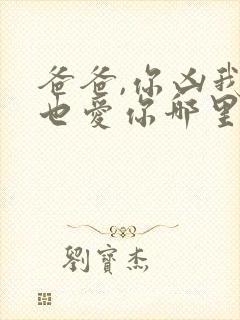 爸爸,你凶我
也爱你哪里
劉寶杰